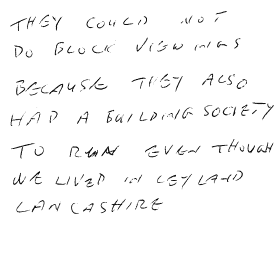 THEY COULD NOT
DO BLOCK VIEWINGS
BECAUSE THEY ALSO
HAD A BUILDING SOCIETY
TO RUN EVEN THOUGH
WE LIVED IN LEYLAND
LANCASHIRE